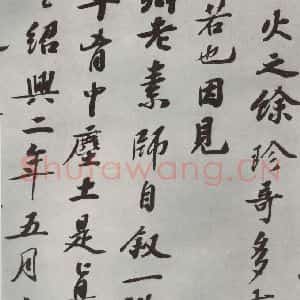 火之餘珍尋多
若也因見
老素師自叙一
胷中塵土是
紹興二年五月
Shufawang.CN